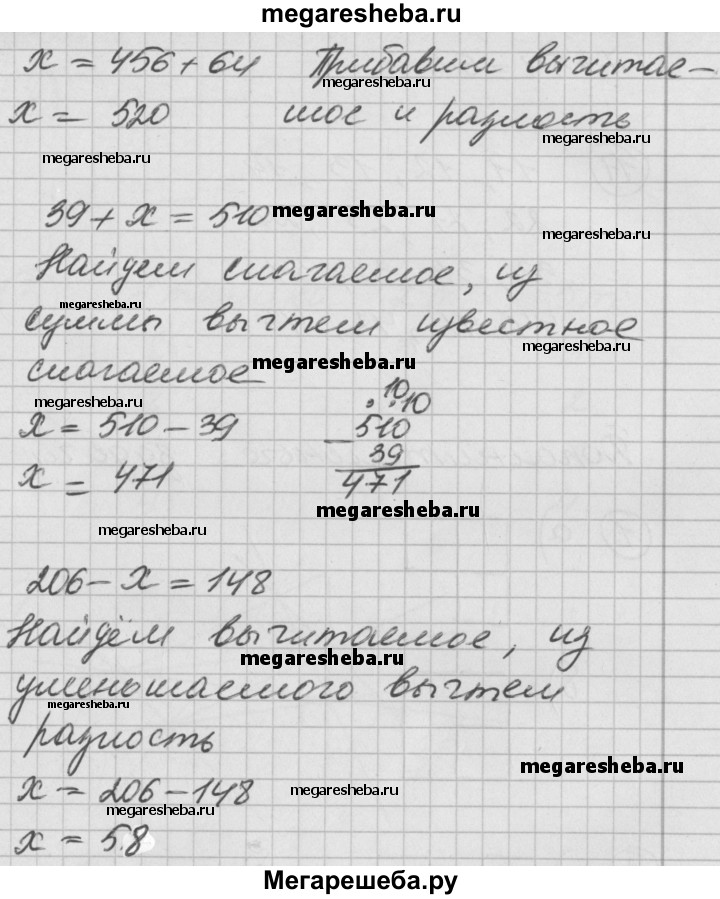 megaresheba.ru
x = 456 + 64 Прибавим вычитае-
megaresheba.ru
x = 520 мое и разность
megaresheba.ru
megaresheba.ru
39 + x = 510 megaresheba.ru
megaresheba.ru
Найдем слагаемое, из
megaresheba.ru
суммы вычтем известное
megaresheba.ru
слагаемое megaresheba.ru
megaresheba.ru
10 10
x = 510 - 39 510
- 39
x = 471 471
megaresheba.ru
megaresheba.ru
206 - x = 148
Найдём вычитаемое, из
megaresheba.ru
уменьшаемого вычтем
megaresheba.ru
разность
megaresheba.ru
x = 206 - 148 megaresheba.ru
megaresheba.ru
x = 58
Мегарешеба.ру